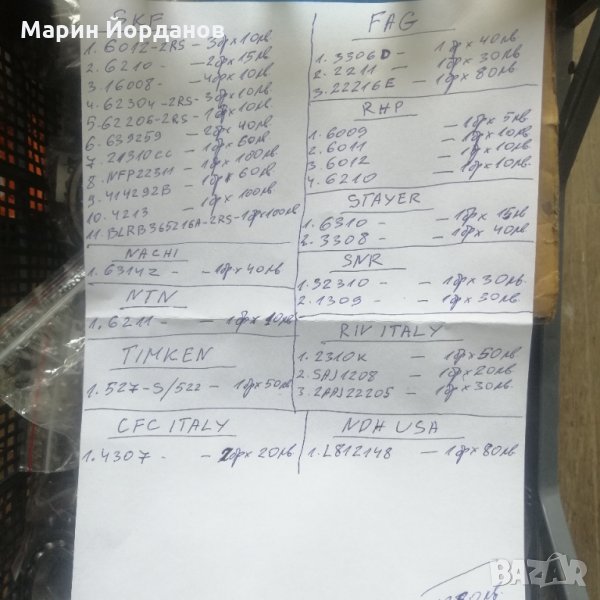 Марин Йорданов
SKF
1. 6012-2RS - 3бр x 10лв
2. 6210 - - 2бр x 15лв
3. 16008 - - 4бр x 10лв
4. 62304-2RS - 3бр x 10лв
5. 62206-2RS - 1бр x 10лв
6. 639259 - 2бр x 40лв
7. 21310cc - 1бр x 60лв
8. NFP22311 - 1бр x 100лв
9. 414292B - 1бр x 60лв
10. 4213 - 1бр x 100лв
11. BLRB365216A-2RS-1бр x 100лв
NACHI
1. 6314z - - 1бр x 40лв
NTN
1. 6211 - - 1бр x 10лв
TIMKEN
1. 527-S/522 - 1бр x 50лв
CFC ITALY
1. 4307 - - 2бр x 20лв
FAG
1. 3306D - 1бр x 40лв
2. 2211 - 1бр x 30лв
3. 22216E - 1бр x 80лв
RHP
1. 6009 - 1бр x 5лв
2. 6011 - 1бр x 10лв
3. 6012 - 1бр x 10лв
4. 6210 - 1бр x 10лв
STAYER
1. 6310 - - 1бр x 15лв
2. 3308 - - 1бр x 40лв
SNR
1. 32310 - - 1бр x 30лв
2. 1309 - - 1бр x 50лв
RIV ITALY
1. 2310K - 1бр x 50лв
2. SAJ1208 - 1бр x 20лв
3. 2AAJ22205 - 1бр x 30лв
NDH USA
1. L812148 - 1бр x 80лв
BAZAR